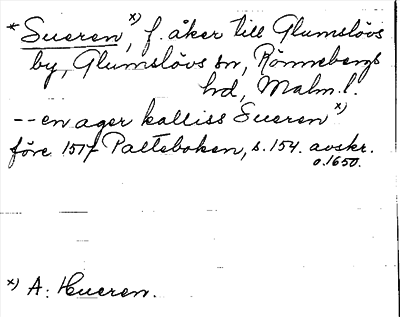 * Sueren x), f. åker till Glumslövs
by, Glumslövs sn, Rönnebergs
hd, Malm. l.
-- en ager kalliss Sueren x)
före 1517 Palteboken, s. 154. avskr.
o. 1650.
x) A: Hueren.